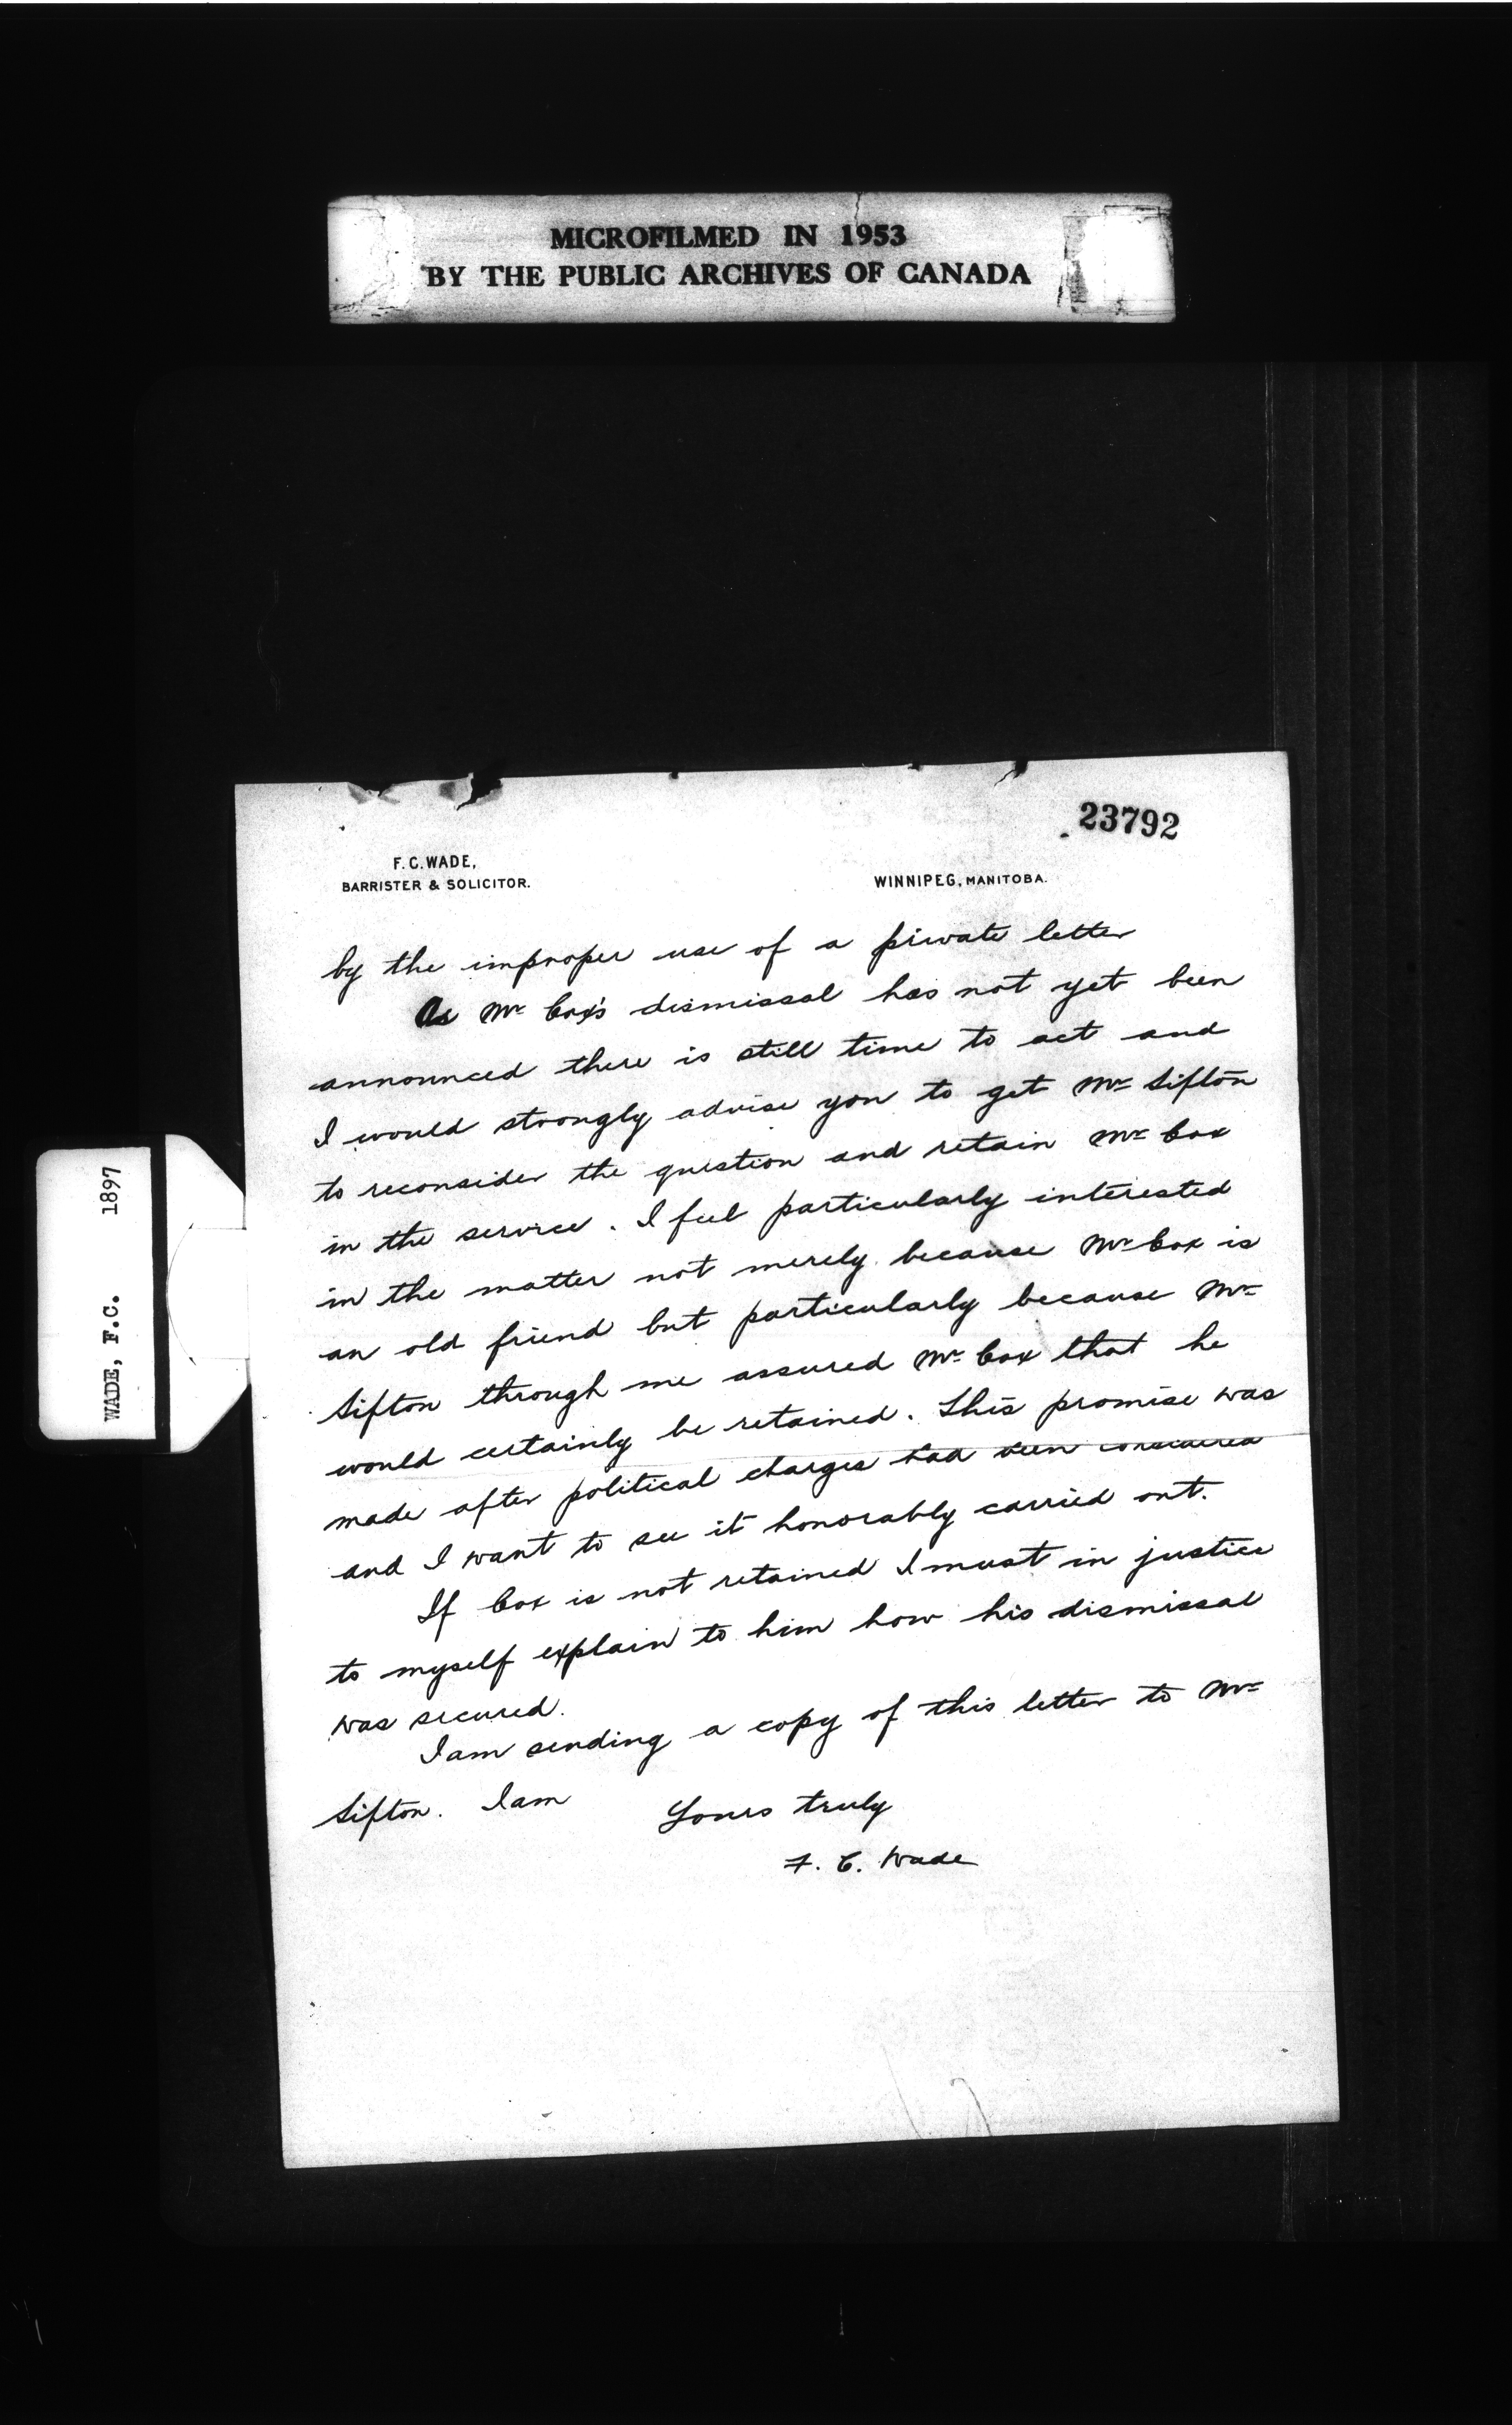 MICROFILMED IN 1953
BY THE PUBLIC ARCHIVES OF CANADA
23792
F. C. WADE,
BARRISTER & SOLICITOR.
WINNIPEG, MANITOBA.
by the improper use of a private letter
As Mr Cox's dismissal has not yet been
announced there is still time to act and
I would strongly advise you to get Mr Sifton
to reconsider the question and retain Mr Cox
in the service. I feel particularly interested
in the matter not merely because Mr Cox is
an old friend but particularly because Mr
Sifton through me assured Mr Cox that he
would certainly be retained. This promise was
made after political charges had been considered
and I want to see it honorably carried out.
If Cox is not retained I must in justice
to myself explain to him how his dismissal
was secured.
I am sending a copy of this letter to Mr
Sifton. I am
Yours truly
F. C. Wade
WADE, F.C. 1897